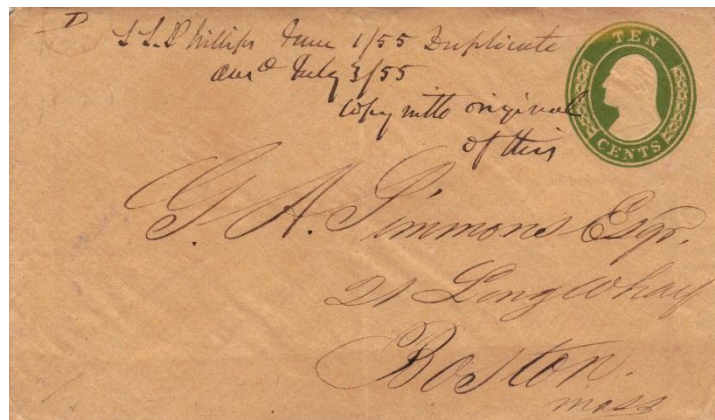 S L. Phillips June 1/55 Duplicate
ans^d July 3/55
Copy with original
of this
TEN
CENTS
G. A. Simmons Esqr.
21 Long Wharf
Boston.
mass